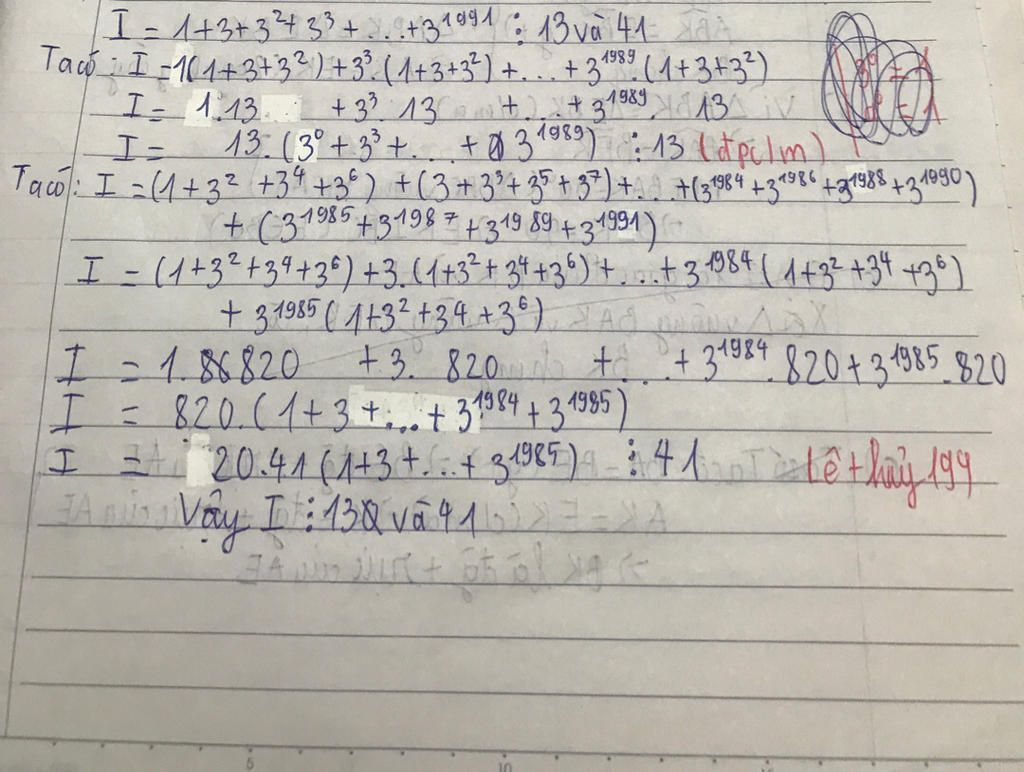 I = 1+3+3²+3³+...+3¹⁹⁹¹ ⋮ 13 và 41
Ta có: I = 1(1+3+3²)+3³.(1+3+3²)+...+3¹⁹⁸⁹.(1+3+3²)
I = 1.13 +3³.13 +...+3¹⁹⁸⁹.13
I = 13.(3⁰+3³+...+3¹⁹⁸⁹) ⋮ 13 (đpc/m)
Ta có: I = (1+3²+3⁴+3⁶)+(3+3³+3⁵+3⁷)+...+(3¹⁹⁸⁴+3¹⁹⁸⁶+3¹⁹⁸⁸+3¹⁹⁹⁰)
+(3¹⁹⁸⁵+3¹⁹⁸⁷+3¹⁹⁸⁹+3¹⁹⁹¹)
I = (1+3²+3⁴+3⁶)+3.(1+3²+3⁴+3⁶)+...+3¹⁹⁸⁴(1+3²+3⁴+3⁶)
+3¹⁹⁸⁵(1+3²+3⁴+3⁶)
I = 1.820 +3.820 +...+3¹⁹⁸⁴.820+3¹⁹⁸⁵.820
I = 820.(1+3+...+3¹⁹⁸⁴+3¹⁹⁸⁵)
I = 20.41(1+3+...+3¹⁹⁸⁵) ⋮ 41
Vậy I ⋮ 13 và 41
5 10